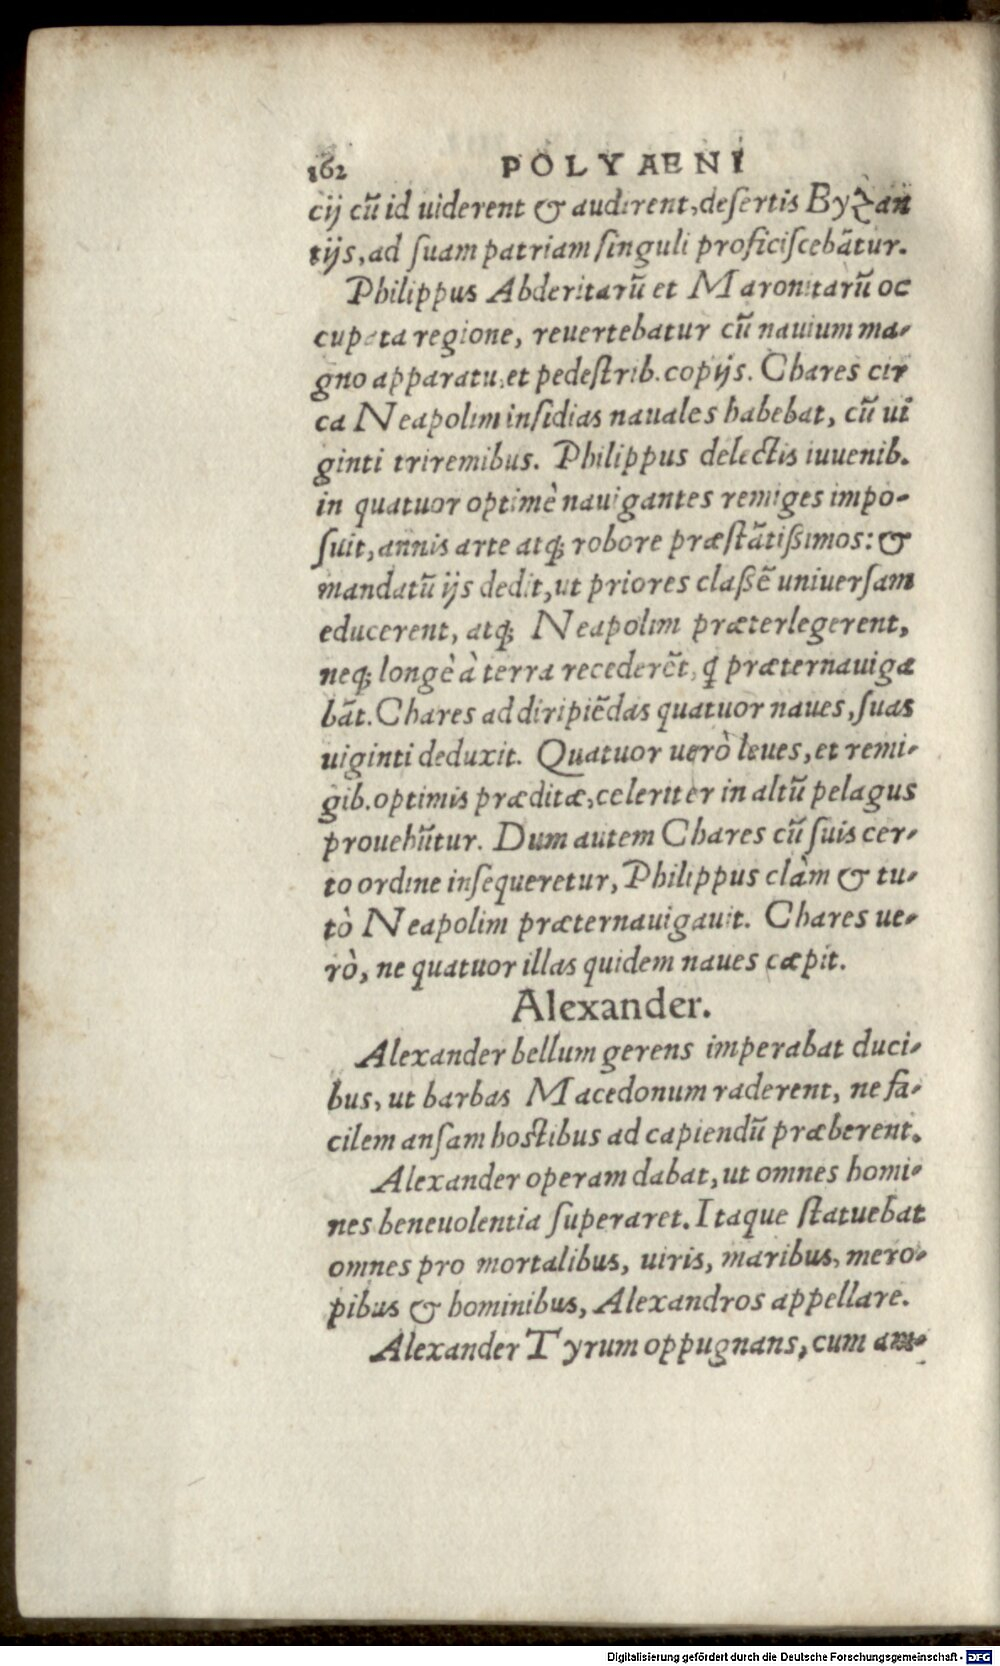 162 POLYAENI
cij cū id uiderent & audirent, desertis Byzan
tijs, ad suam patriam singuli proficiscebātur.
Philippus Abderitarū et Maronitarū oc
cupata regione, reuertebatur cū nauium ma-
gno apparatu, et pedestrib. copijs. Chares cir
ca Neapolim insidias nauales habebat, cū ui
ginti triremibus. Philippus delectis iuuenib.
in quatuor optimè nauigantes remiges impo-
suit, annis arte atq; robore præstātißimos: &
mandatū ijs dedit, ut priores claßē uniuersam
educerent, atq; Neapolim præterlegerent,
neq; longè à terra recederēt, q̄ præternauiga
bāt. Chares ad diripiēdas quatuor naues, suas
uiginti deduxit. Quatuor uerò leues, et remi-
gib. optimis præditæ, celeriter in altū pelagus
prouehūtur. Dum autem Chares cū suis cer-
to ordine insequeretur, Philippus clàm & tu-
tò Neapolim præternauigauit. Chares ue-
rò, ne quatuor illas quidem naues cæpit.
Alexander.
Alexander bellum gerens imperabat duci-
bus, ut barbas Macedonum raderent, ne fa-
cilem ansam hostibus ad capiendū præberent.
Alexander operam dabat, ut omnes homi-
nes beneuolentia superaret. Itaque statuebat
omnes pro mortalibus, uiris, maribus, mero-
pibus & hominibus, Alexandros appellare.
Alexander Tyrum oppugnans, cum am-
Digitalisierung gefördert durch die Deutsche Forschungsgemeinschaft - DFG